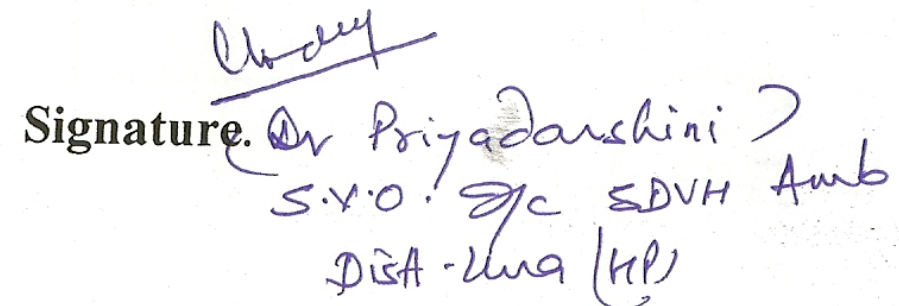 Signature. (Dr Priyadarshini)
S.V.O. I/c SDVH Amb
Distt - Una (HP)